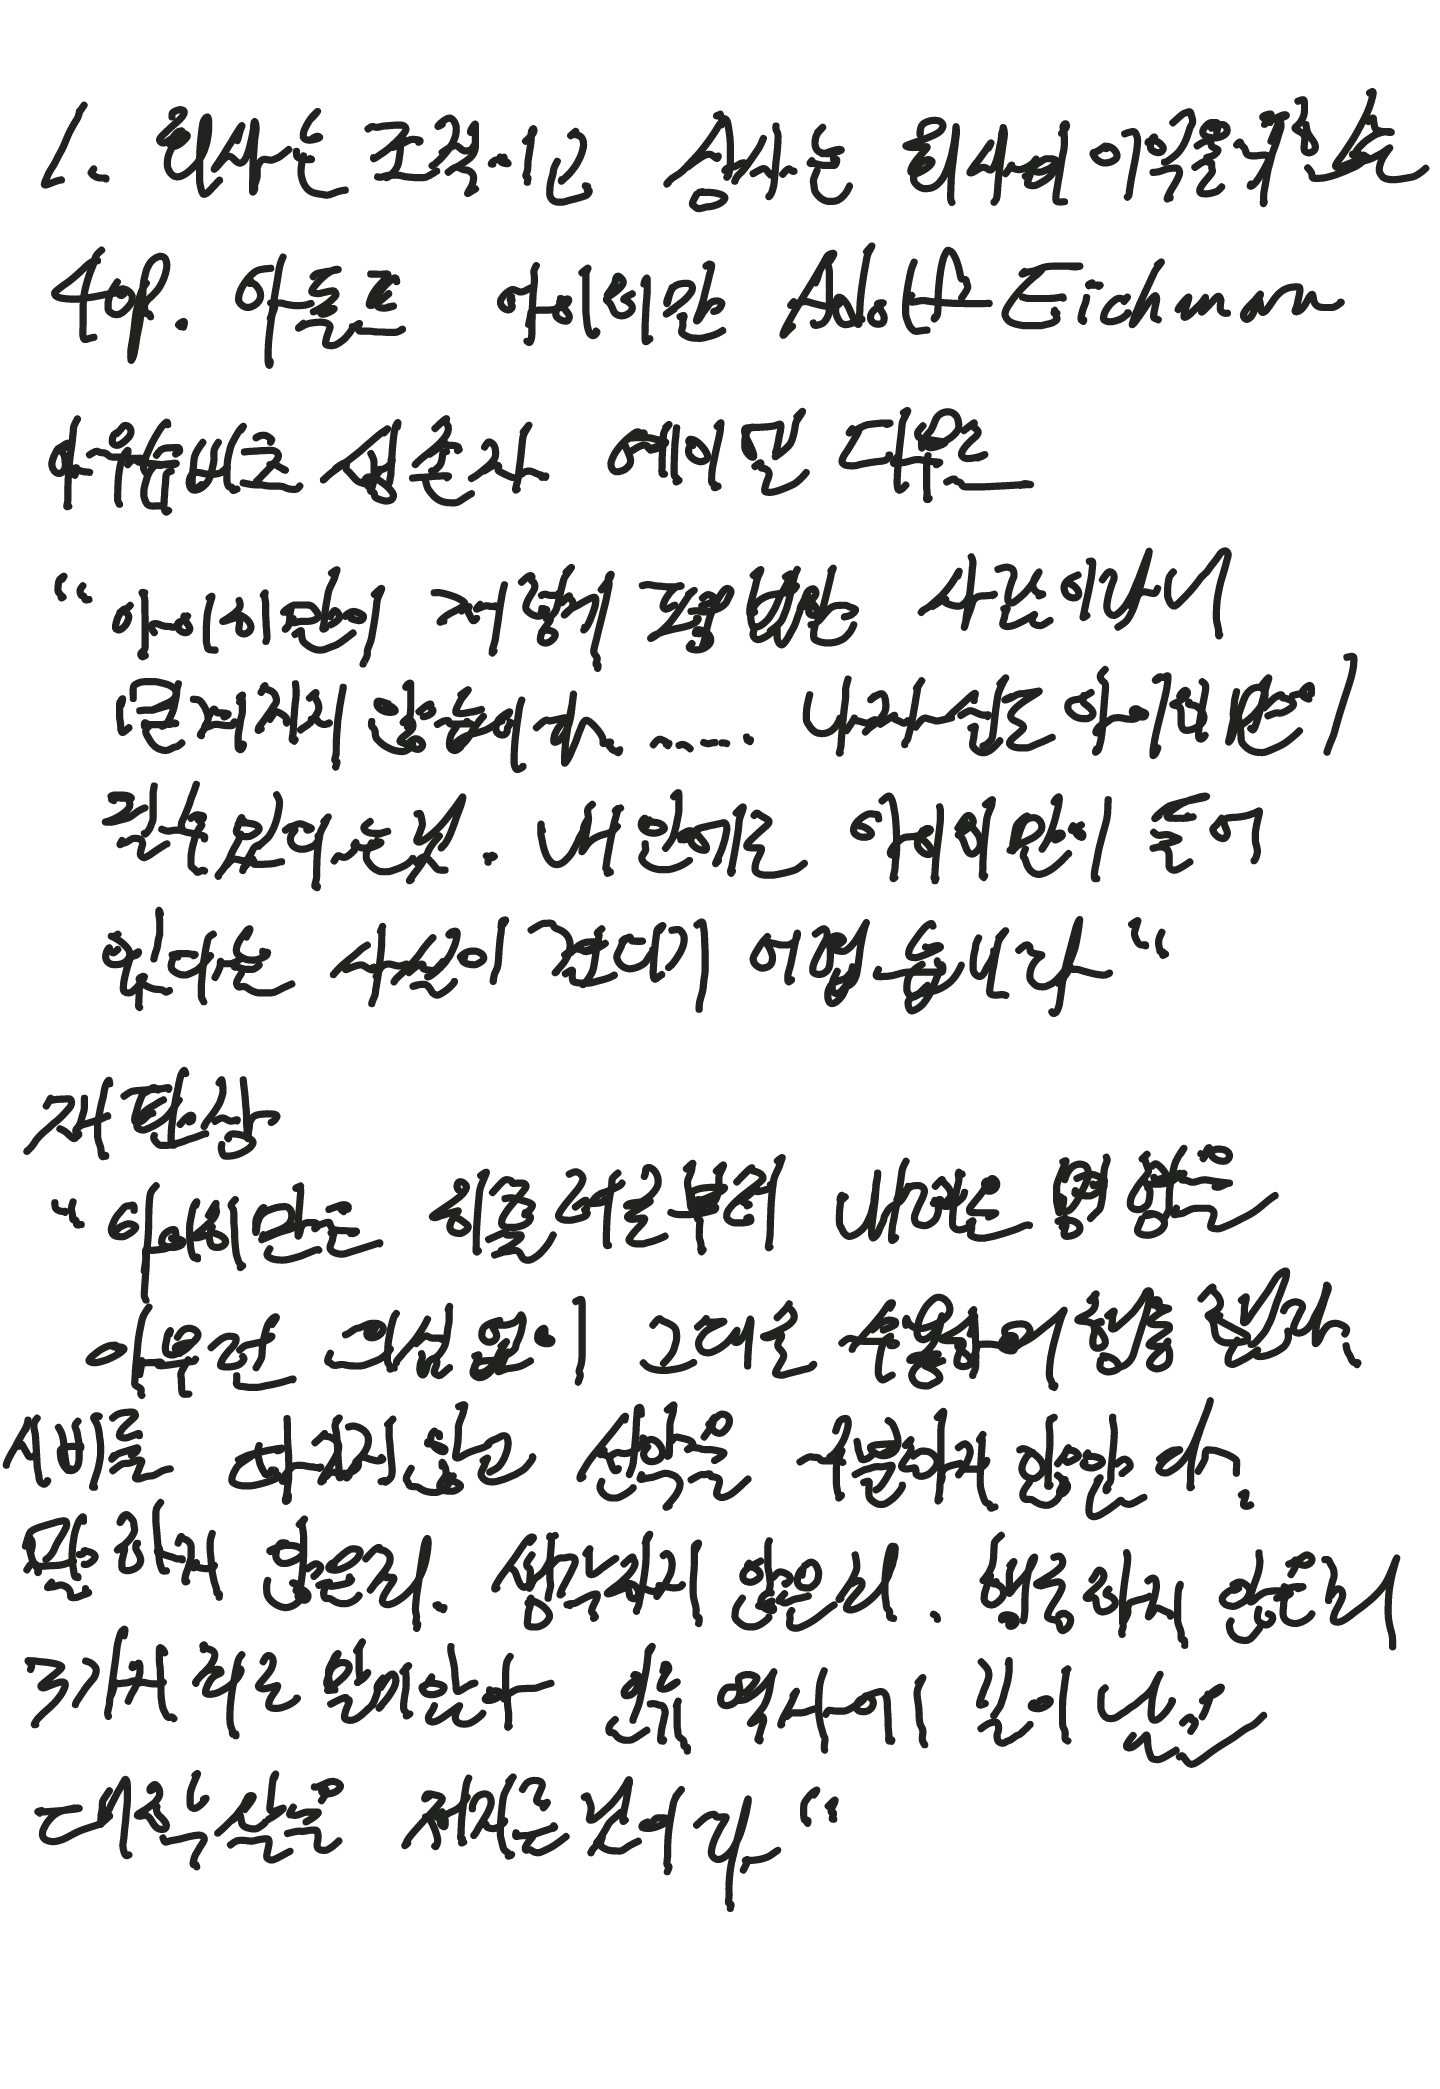 1. 회사는 조직이고 상사는 회사의 이익을 위하는
수야. 아돌프 아이히만 Adolf Eichmann
아우슈비츠 생존자 예이만 다운
“아이히만이 저렇게 평범한 사람이라니
믿겨지지 않습니다, ..... 나 자신도 아이히만이
될수 있다는 것. 내 안에도 아이히만이 들어
있다는 사실이 견디기 어렵습니다“
재판상
“아이히만은 히틀러로부터 내려온 명령을
아무런 의심없이 그대로 수용하여 행동한다,
시비를 따지지 않는 선악을 구분하지 않는다.
말하지 않은죄. 생각하지 않은죄. 행동하지 않은죄
3가지 죄로 말미암아 인류 역사에 길이 남을
대학살을 저지른 것이다“